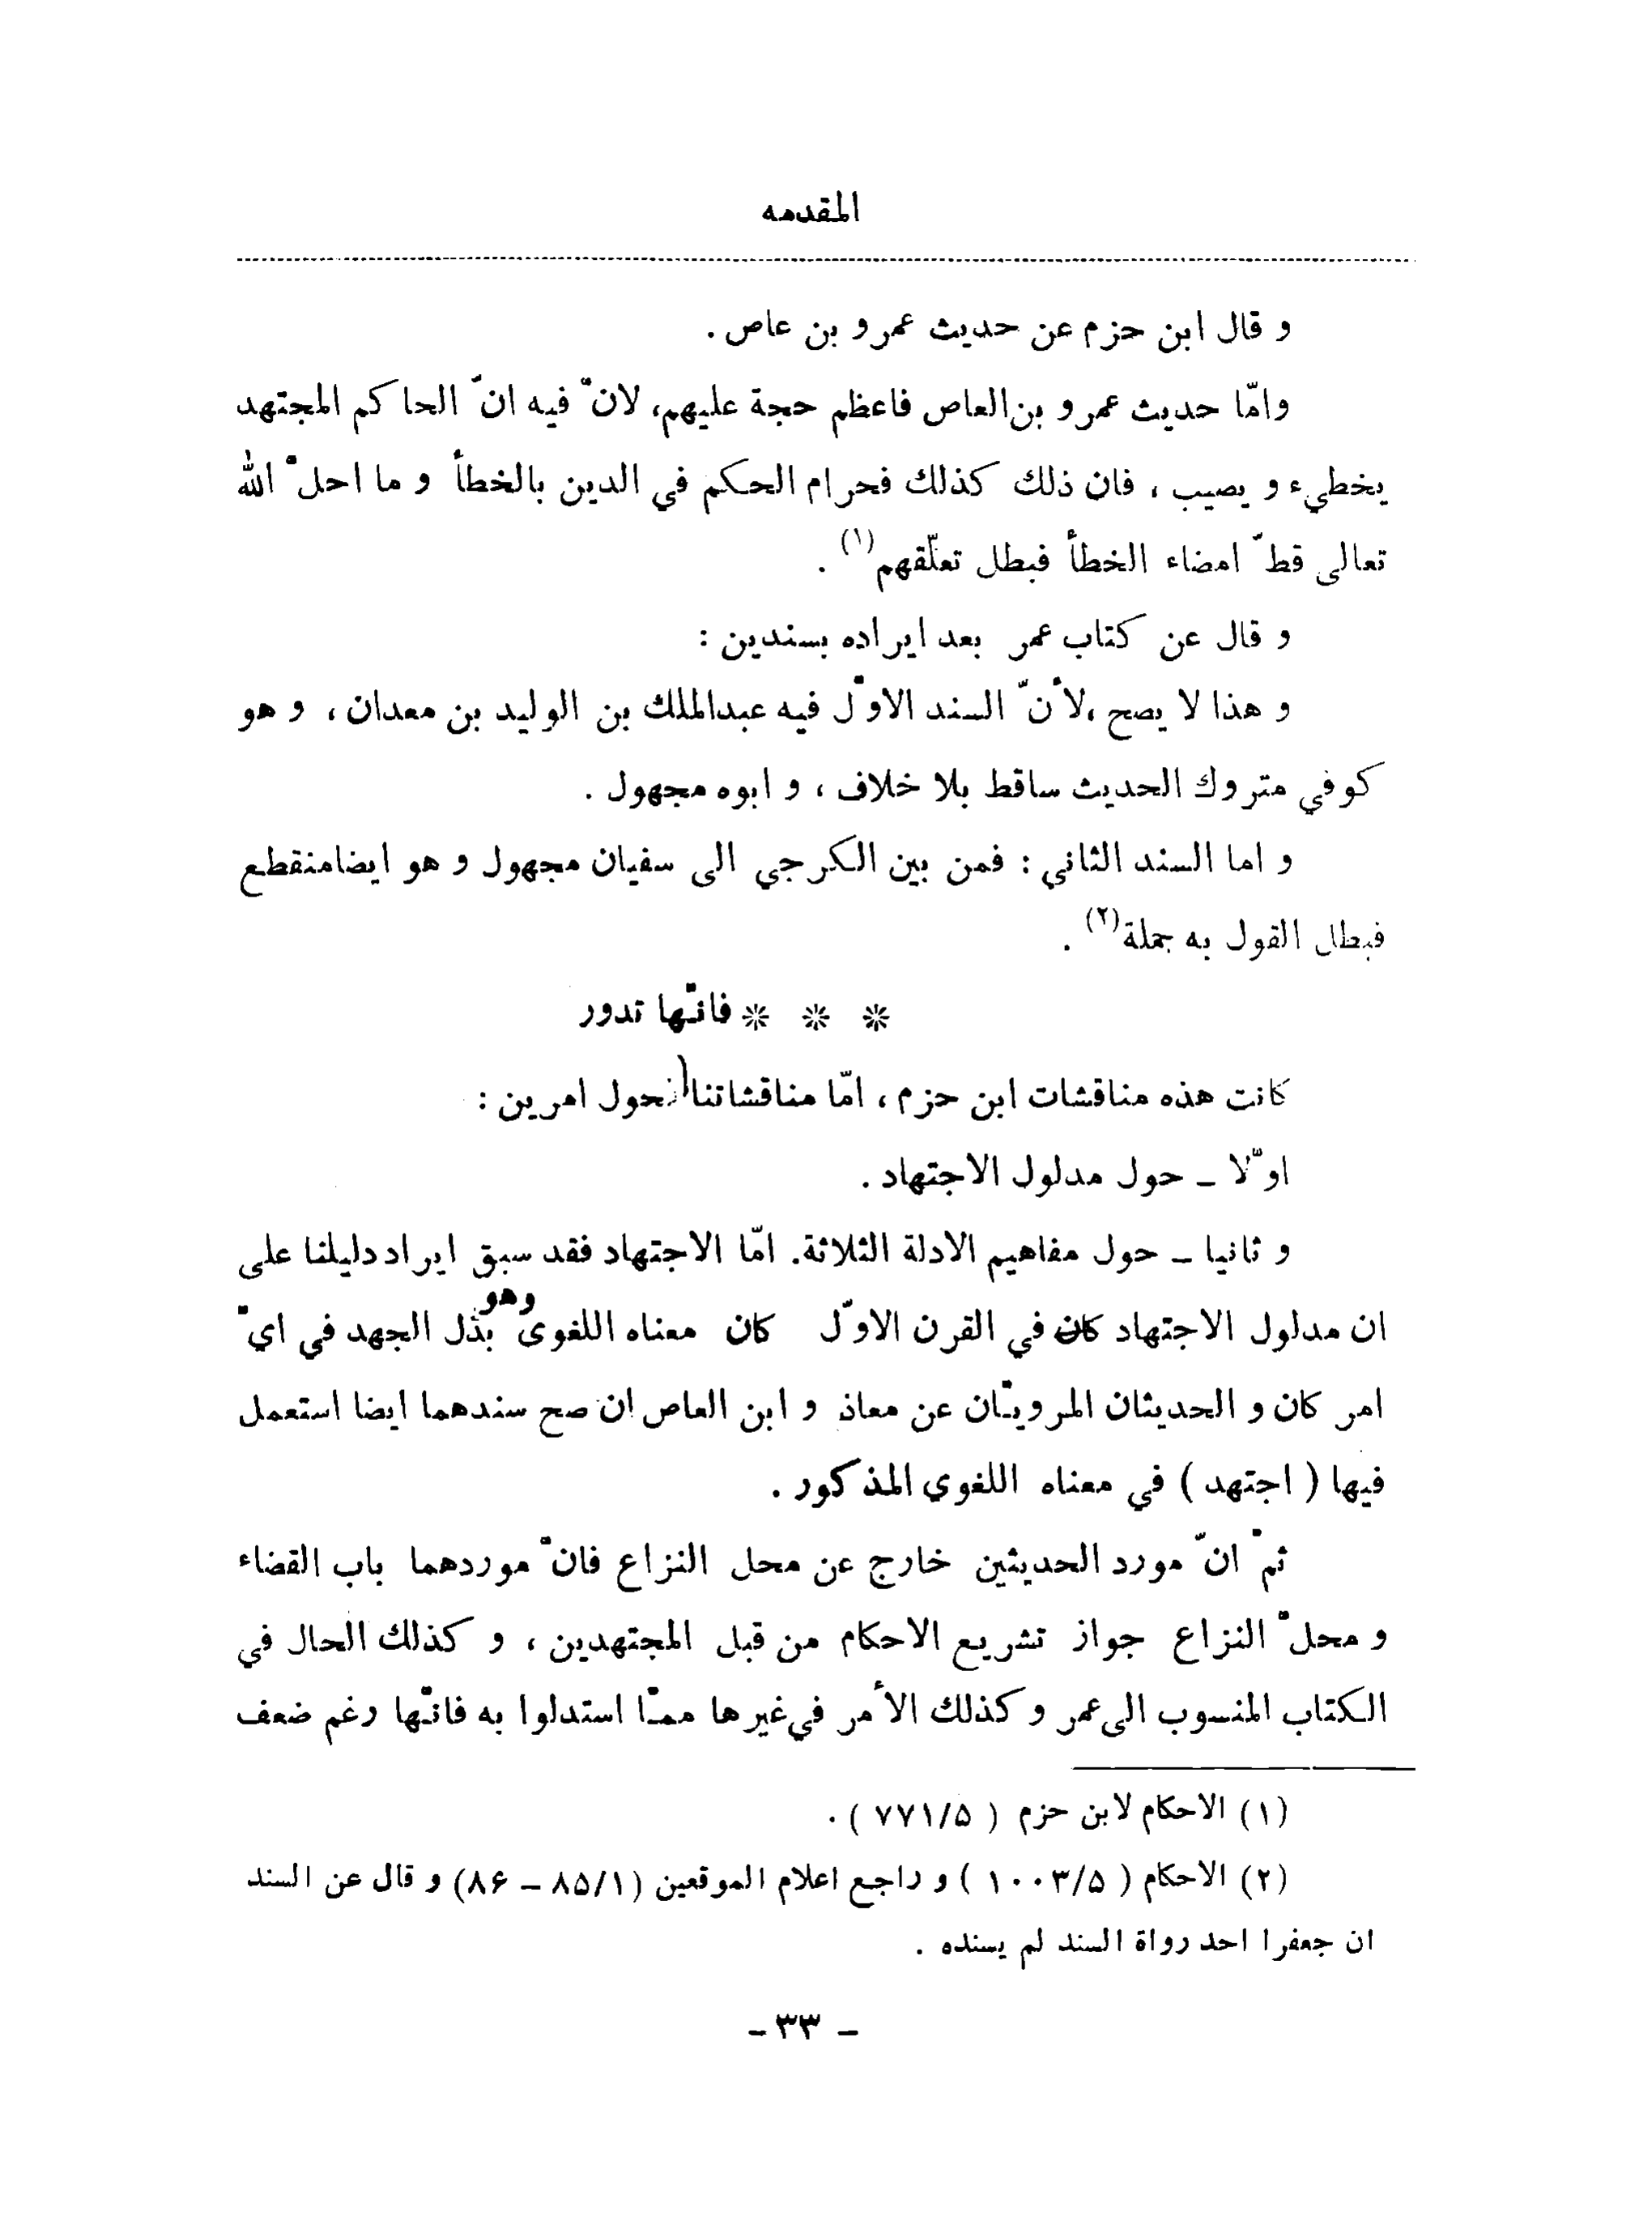 المقدمه
و قال ابن حزم عن حديث عمرو بن عاص .
وامّا حديث عمرو بن العاص فاعظم حجة عليهم، لانّ فيه انّ الحاكم المجتهد
يخطيء و يصيب ، فان ذلك كذلك فحرام الحكم في الدين بالخطأ و ما احلّ الله
تعالى قطّ امضاء الخطأ فبطل تعلّقهم(١) .
و قال عن كتاب عمر بعد ايراده بسندين :
و هذا لا يصح ،لأنّ السند الاوّل فيه عبدالملك بن الوليد بن معدان ، و هو
كوفي متروك الحديث ساقط بلا خلاف ، و ابوه مجهول .
و اما السند الثاني : فمن بين الكرجي الى سفيان مجهول و هو ايضا منقطع
فبطل القول به جملة(٢) .
* * * فانّها تدور
كانت هذه مناقشات ابن حزم ، امّا مناقشاتنا حول امرين :
اوّلا ـ حول مدلول الاجتهاد .
و ثانيا ـ حول مفاهيم الادلة الثلاثة. امّا الاجتهاد فقد سبق ايراد دليلنا على
وهو
ان مدلول الاجتهاد كان في القرن الاوّل كان معناه اللغوى بذل الجهد في ايّ
امر كان و الحديثان المرويّان عن معاذ و ابن العاص ان صح سندهما ايضا استعمل
فيها ( اجتهد ) في معناه اللغوي المذكور .
ثمّ انّ مورد الحديثين خارج عن محل النزاع فانّ موردهما باب القضاء
و محلّ النزاع جواز تشريع الاحكام من قبل المجتهدين ، و كذلك الحال في
الكتاب المنسوب الى عمر و كذلك الأمر في غيرها ممّا استدلوا به فانّها رغم ضعف
(١) الاحكام لابن حزم ( ٧٧١/۵ ) .
(٢) الاحكام ( ١٠٠٣/۵ ) و راجع اعلام الموقعين (٨۵/١ ـ ٨۶) و قال عن السند
ان جعفرا احد رواة السند لم يسنده .
ـ ٣٣ ـ